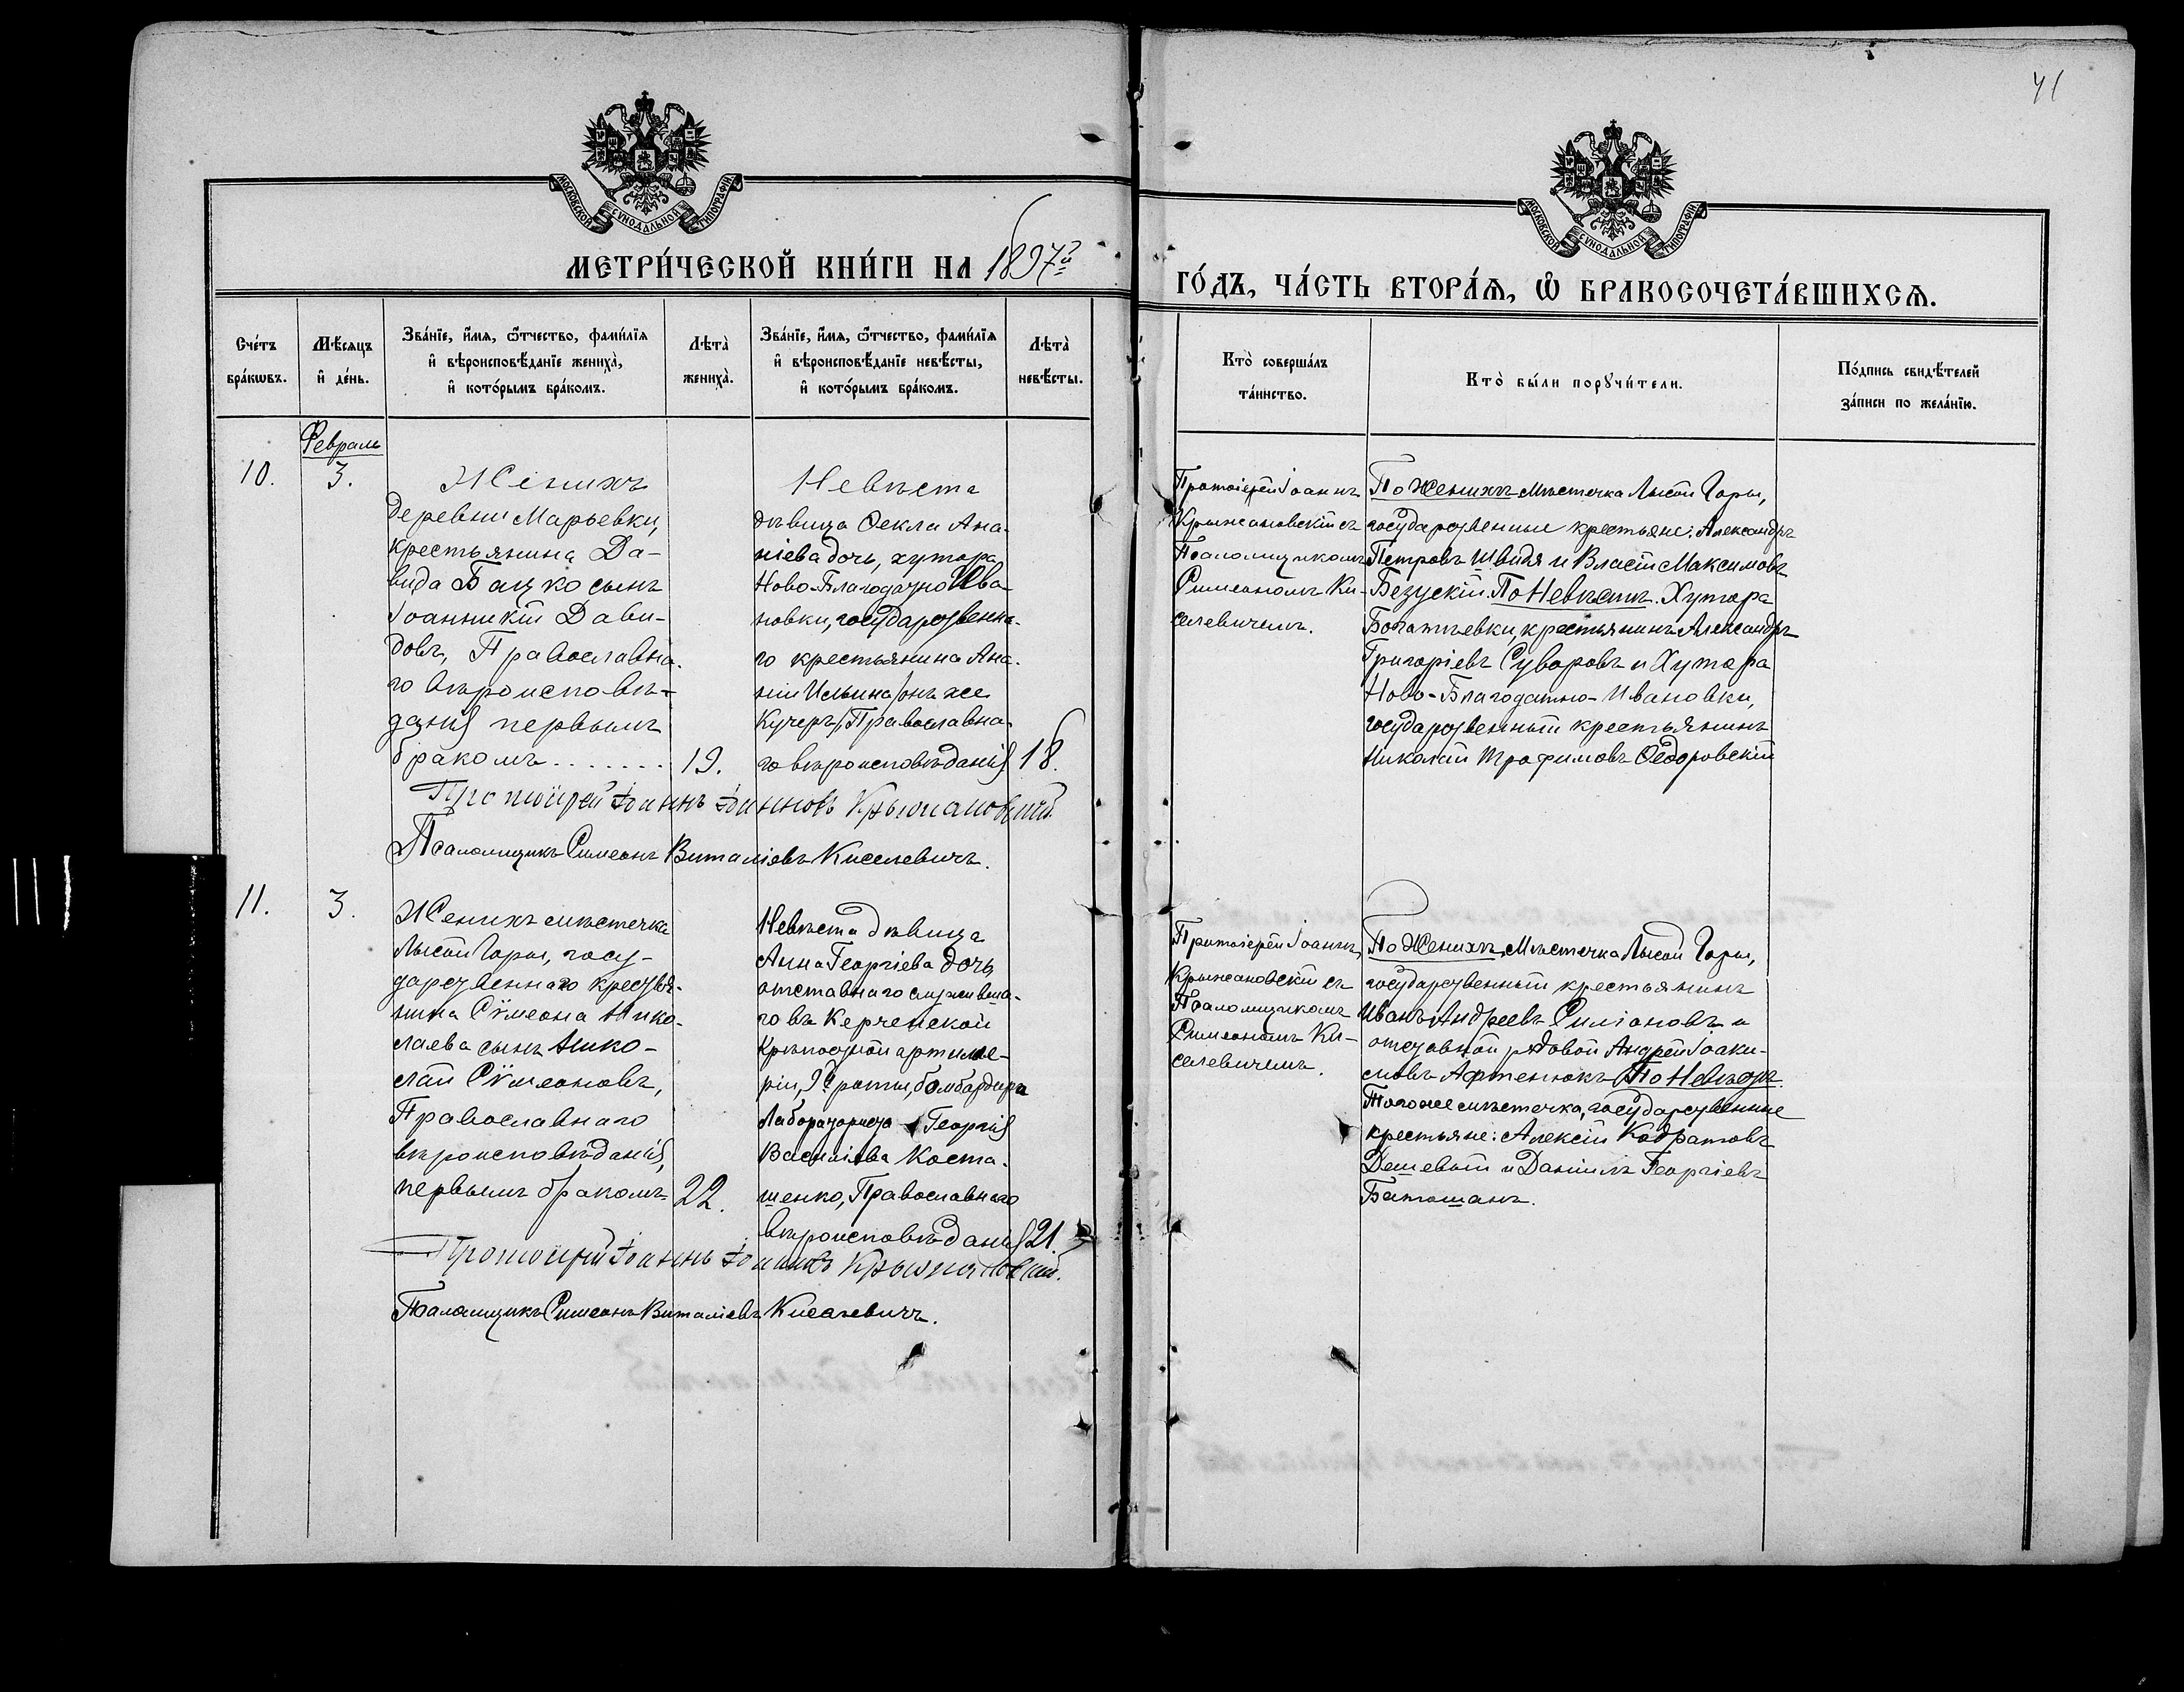 41
МОСКОВСКОЙ СУНОДАЛЬНОЙ ТИПОГРАФІИ
МОСКОВСКОЙ СУНОДАЛЬНОЙ ТИПОГРАФІИ
МЕТРИ́ЧЕСКОЙ КНИ́ГИ НА 1897й
ГО́ДЪ, ЧА́СТЬ ВТОРА́Ѧ, Ѡ҆ БРАКОСОЧЕТА́ВШИХСѦ.
Сче́тъ
бра́кѡвъ.
Мѣ́сяцъ
и҆ де́нь.
Зва́нїе, и҆́мѧ, ѻ҆́тчество, фами́лїѧ
и҆ вѣроисповѣ́данїе жениха̀,
и҆ кото́рымъ бра́комъ.
Лѣта̀
жениха̀.
Зва́нїе, и҆́мѧ, ѻ҆́тчество, фами́лїѧ
и҆ вѣроисповѣ́данїе невѣ́сты,
и҆ кото́рымъ бра́комъ.
Лѣта̀
невѣ́сты.
Кто̀ соверша́лъ
та́инство.
Кто̀ бы́ли порꙋчи́тели.
По́дпись свидѣ́телей
за́писи по жела́нїю.
Февраль
10.
3.
Женихъ
деревни Марьевки,
крестьянина Да-
вида Бацко сынъ
Іоанникій Дави-
довъ, Православна-
го вѣроисповѣ-
данія первымъ
бракомъ.......
19.
Невѣста
дѣвица Ѳекла Ана-
ніева дочь, хутора
Ново-Благодатно Ива-
новки, государственна-
го крестьянина Ана-
ніи Ильина /онъ же
Кучеръ/, Православна-
го вѣроисповѣданія
18.
Протоіерей Іоаннъ
Крыжановскій съ
Псаломщикомъ
Симеономъ Ки-
селевичемъ.
По Женихѣ Мѣстечка Лысой Горы,
государственные крестьяне: Александръ
Петровъ Швидя и Власій Максимовъ
Безускій. По Невѣстѣ. Хутора
Богатыевки, крестьянинъ Александръ
Григоріевъ Суворовъ и Хутора
Ново-Благодатно-Ивановки,
государственный крестьянинъ
Николай Трофимовъ Ѳедоровскій
Протоіерей Іоаннъ Іоанновъ Крыжановскій.
Псаломщикъ Симеонъ Виталіевъ Киселевичъ.
11.
3.
Женихъ мѣстечка
Лысой Горы, госу-
дарственнаго крестья-
нина Сѵмеона Нико-
лаева сынъ Нико-
лай Сѵмеоновъ,
Православнаго
вѣроисповѣданія,
первымъ бракомъ
22.
Невѣста дѣвица
Анна Георгіева дочь
отставнаго служивша-
го въ Керченской
крѣпостной артилле-
ріи, 9й роты, бомбардира
Лабораториста Георгія
Василіева Коста-
шенко, Православнаго
вѣроисповѣданія
21.
Протоіерей Іоаннъ
Крыжановскій съ
Псаломщикомъ
Симеономъ Ки-
селевичемъ.
По Женихѣ, Мѣстечка Лысой Горы,
государственный крестьянинъ
Иванъ Андреевъ Силіановъ и
отставной рядовой Андрей Іоаки-
мовъ Афтенюкъ По Невѣстѣ.
Того же мѣстечка, государственные
крестьяне: Алексій Кодратовъ
Дешевый и Даніилъ Георгіевъ
Батошанъ.
Протоіерей Іоаннъ Іоанновъ Крыжановскій.
Псаломщикъ Симеонъ Виталіевъ Киселевичъ.